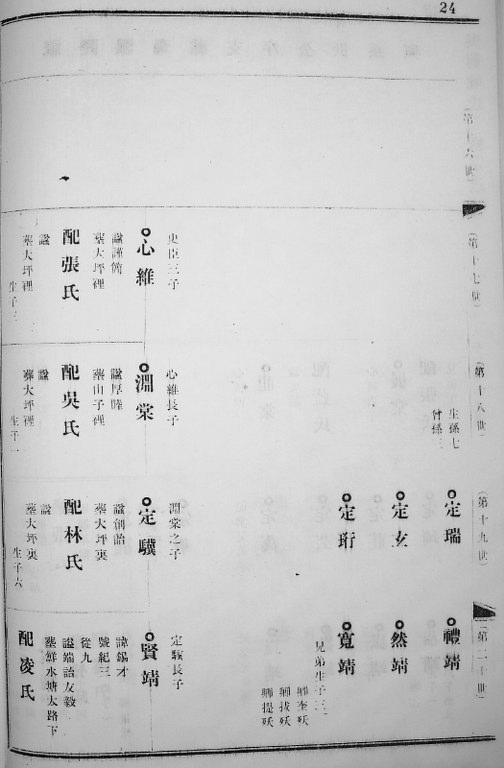 24
(第十六世)
(第十七世)
史臣三子
心維
諡謹簡
葬大坪裡
配張氏
諡
葬大坪裡
生子三
(第十八世)
生孫七
曾孫三
心維長子
淵棠
諡厚睦
葬山子裡
配吳氏
諡
葬大坪裡
生子一
(第十九世)
定瑞
定玄
定珩
淵棠之子
定驥
諡創詒
葬大坪裏
配林氏
諡
葬大坪裏
生子六
(第二十世)
禮靖
然靖
寬靖
兄弟生子三
師奎殀
師拔殀
師提殀
定驥長子
賢靖
諱錫才
號紀三
從九
諡端詒友毅
葬鮮水塘太路下
配凌氏